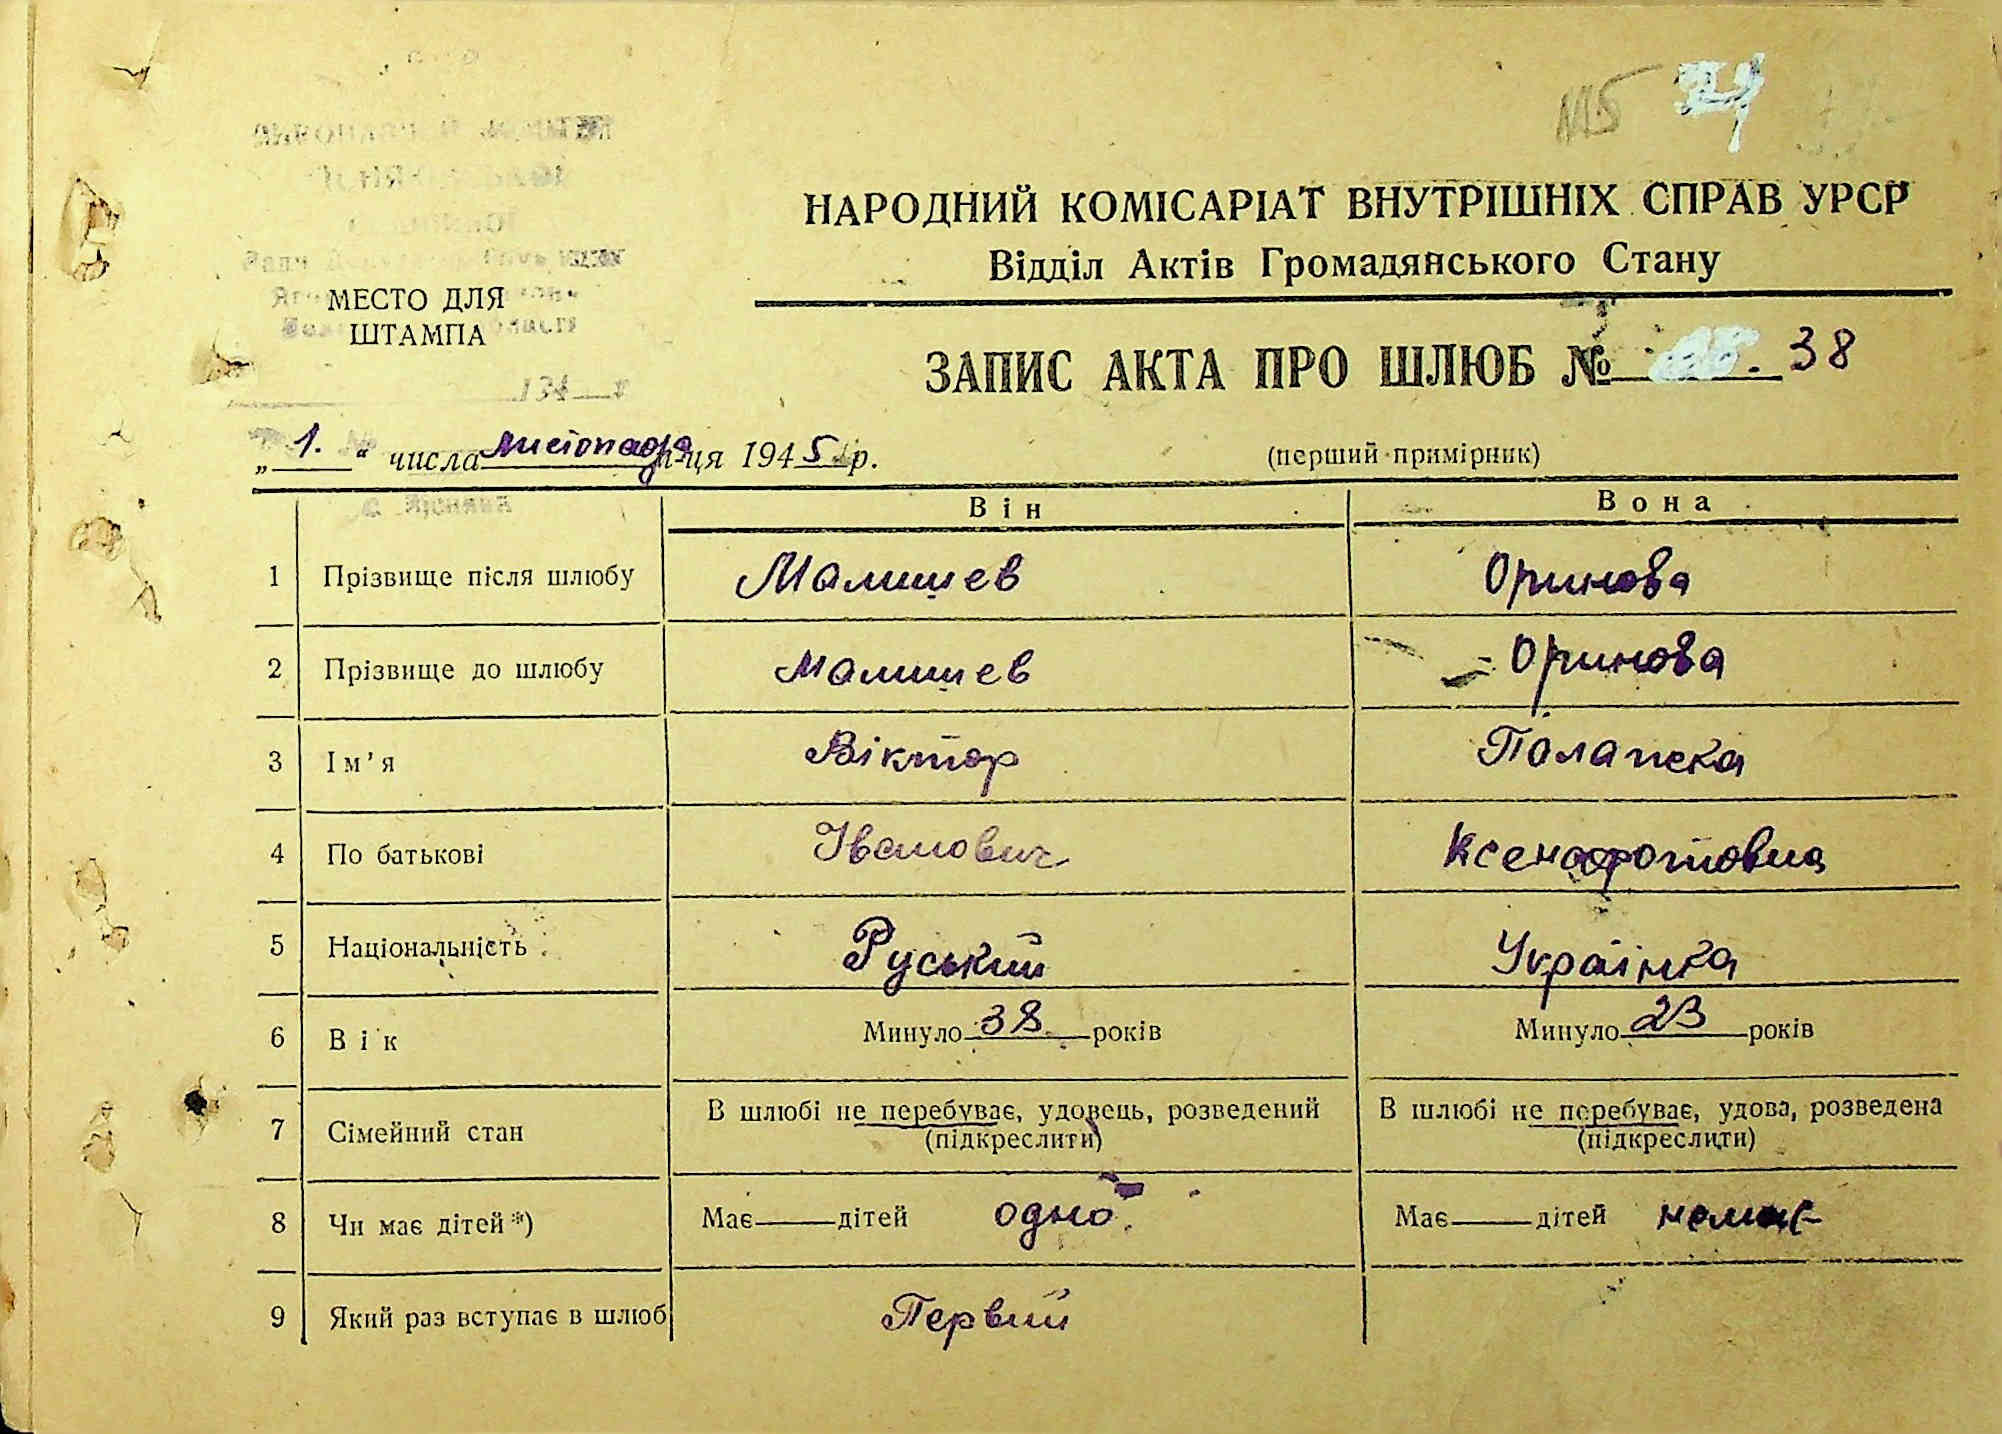 №5
НАРОДНИЙ КОМІСАРІАТ ВНУТРІШНІХ СПРАВ УРСР
Відділ Актів Громадянського Стану
МЕСТО ДЛЯ
ШТАМПА
ЗАПИС АКТА ПРО ШЛЮБ № 38
„1.“ числа листопада м-ця 1945 р.
(перший примірник)
Він Вона
1 Прізвище після шлюбу Малишев Оринова
2 Прізвище до шлюбу Малишев Оринова
3 Ім'я Віктор Палажка
4 По батькові Іванович Ксенофонтовна
5 Національність Руський Українка
6 Вік Минуло 38 років Минуло 23 років
7 Сімейний стан В шлюбі не перебуває, удовець, розведений В шлюбі не перебуває, удова, розведена
(підкреслити) (підкреслити)
8 Чи має дітей*) Має дітей одно. Має дітей немає
9 Який раз вступає в шлюб Первий